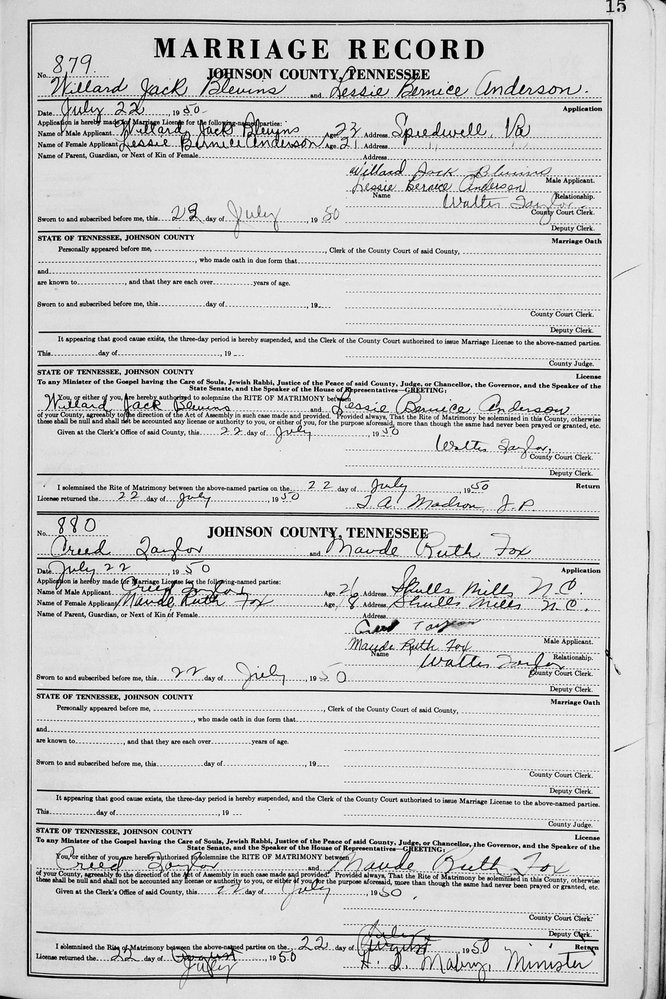 15
MARRIAGE RECORD
No. 879 JOHNSON COUNTY, TENNESSEE
Willard Jack Blevins and Lessie Bernice Anderson.
Date July 22, 1950 Application
Application is hereby made for Marriage License for the following-named parties:
Name of Male Applicant Willard Jack Blevins Age 22 Address Speedwell, Va
Name of Female Applicant Lessie Bernice Anderson Age 21 Address " "
Name of Parent, Guardian, or Next of Kin of Female Address
Willard Jack Blevins
Male Applicant.
Lessie Bernice Anderson
Name Relationship.
Walter Taylor
Sworn to and subscribed before me, this 22 day of July, 1950 County Court Clerk.
Deputy Clerk.
STATE OF TENNESSEE, JOHNSON COUNTY Marriage Oath
Personally appeared before me, , Clerk of the County Court of said County,
, who made oath in due form that
and
are known to , and that they are each over years of age.
Sworn to and subscribed before me, this day of , 19
County Court Clerk.
Deputy Clerk.
It appearing that good cause exists, the three-day period is hereby suspended, and the Clerk of the County Court authorized to issue Marriage License to the above-named parties.
This day of , 19
County Judge.
STATE OF TENNESSEE, JOHNSON COUNTY License
To any Minister of the Gospel having the Care of Souls, Jewish Rabbi, Justice of the Peace of said County, Judge, or Chancellor, the Governor, and the Speaker of the
State Senate, and the Speaker of the House of Representatives—GREETING:
You, or either of you, are hereby authorized to solemnize the RITE OF MATRIMONY between
Willard Jack Blevins and Lessie Bernice Anderson
of your County, agreeably to the direction of the Act of Assembly in such case made and provided. Provided always, That the Rite of Matrimony be solemnized in this County, otherwise
these shall be null and shall not be accounted any license or authority to you, or either of you, for the purpose aforesaid, more than though the same had never been prayed or granted, etc.
Given at the Clerk's Office of said County, this 22 day of July, 1950
Walter Taylor,
County Court Clerk.
Deputy Clerk.
I solemnized the Rite of Matrimony between the above-named parties on the 22 day of July 1950 Return
License returned the 22 day of July, 1950 T. A. Madron, J.P.
No. 880 JOHNSON COUNTY, TENNESSEE
Creed Taylor and Maude Ruth Fox
Date July 22, 1950 Application
Application is hereby made for Marriage License for the following-named parties:
Name of Male Applicant Creed Taylor Age 21 Address Shulls Mills N.C.
Name of Female Applicant Maude Ruth Fox Age 18 Address Shulls Mills N.C.
Name of Parent, Guardian, or Next of Kin of Female Address
Creed Taylor
Male Applicant.
Maude Ruth Fox
Name Relationship.
Walter Taylor
Sworn to and subscribed before me, this 22 day of July, 1950 County Court Clerk.
Deputy Clerk.
STATE OF TENNESSEE, JOHNSON COUNTY Marriage Oath
Personally appeared before me, , Clerk of the County Court of said County,
, who made oath in due form that
and
are known to , and that they are each over years of age.
Sworn to and subscribed before me, this day of , 19
County Court Clerk.
Deputy Clerk.
It appearing that good cause exists, the three-day period is hereby suspended, and the Clerk of the County Court authorized to issue Marriage License to the above-named parties.
This day of , 19
County Judge.
STATE OF TENNESSEE, JOHNSON COUNTY License
To any Minister of the Gospel having the Care of Souls, Jewish Rabbi, Justice of the Peace of said County, Judge, or Chancellor, the Governor, and the Speaker of the
State Senate, and the Speaker of the House of Representatives—GREETING:
You, or either of you are hereby authorized to solemnize the RITE OF MATRIMONY between
Creed Taylor and Maude Ruth Fox
of your County, agreeably to the direction of the Act of Assembly in such case made and provided. Provided always, That the Rite of Matrimony be solemnized in this County, otherwise
these shall be null and shall not be accounted any license or authority to you, or either of you, for the purpose aforesaid, more than though the same had never been prayed or granted, etc.
Given at the Clerk's Office of said County, this 22 day of July, 1950.
County Court Clerk.
Deputy Clerk.
July
I solemnized the Rite of Matrimony between the above-named parties on the 22 day of August 1950 Return
License returned the 22 day of August 1950 Minister
July